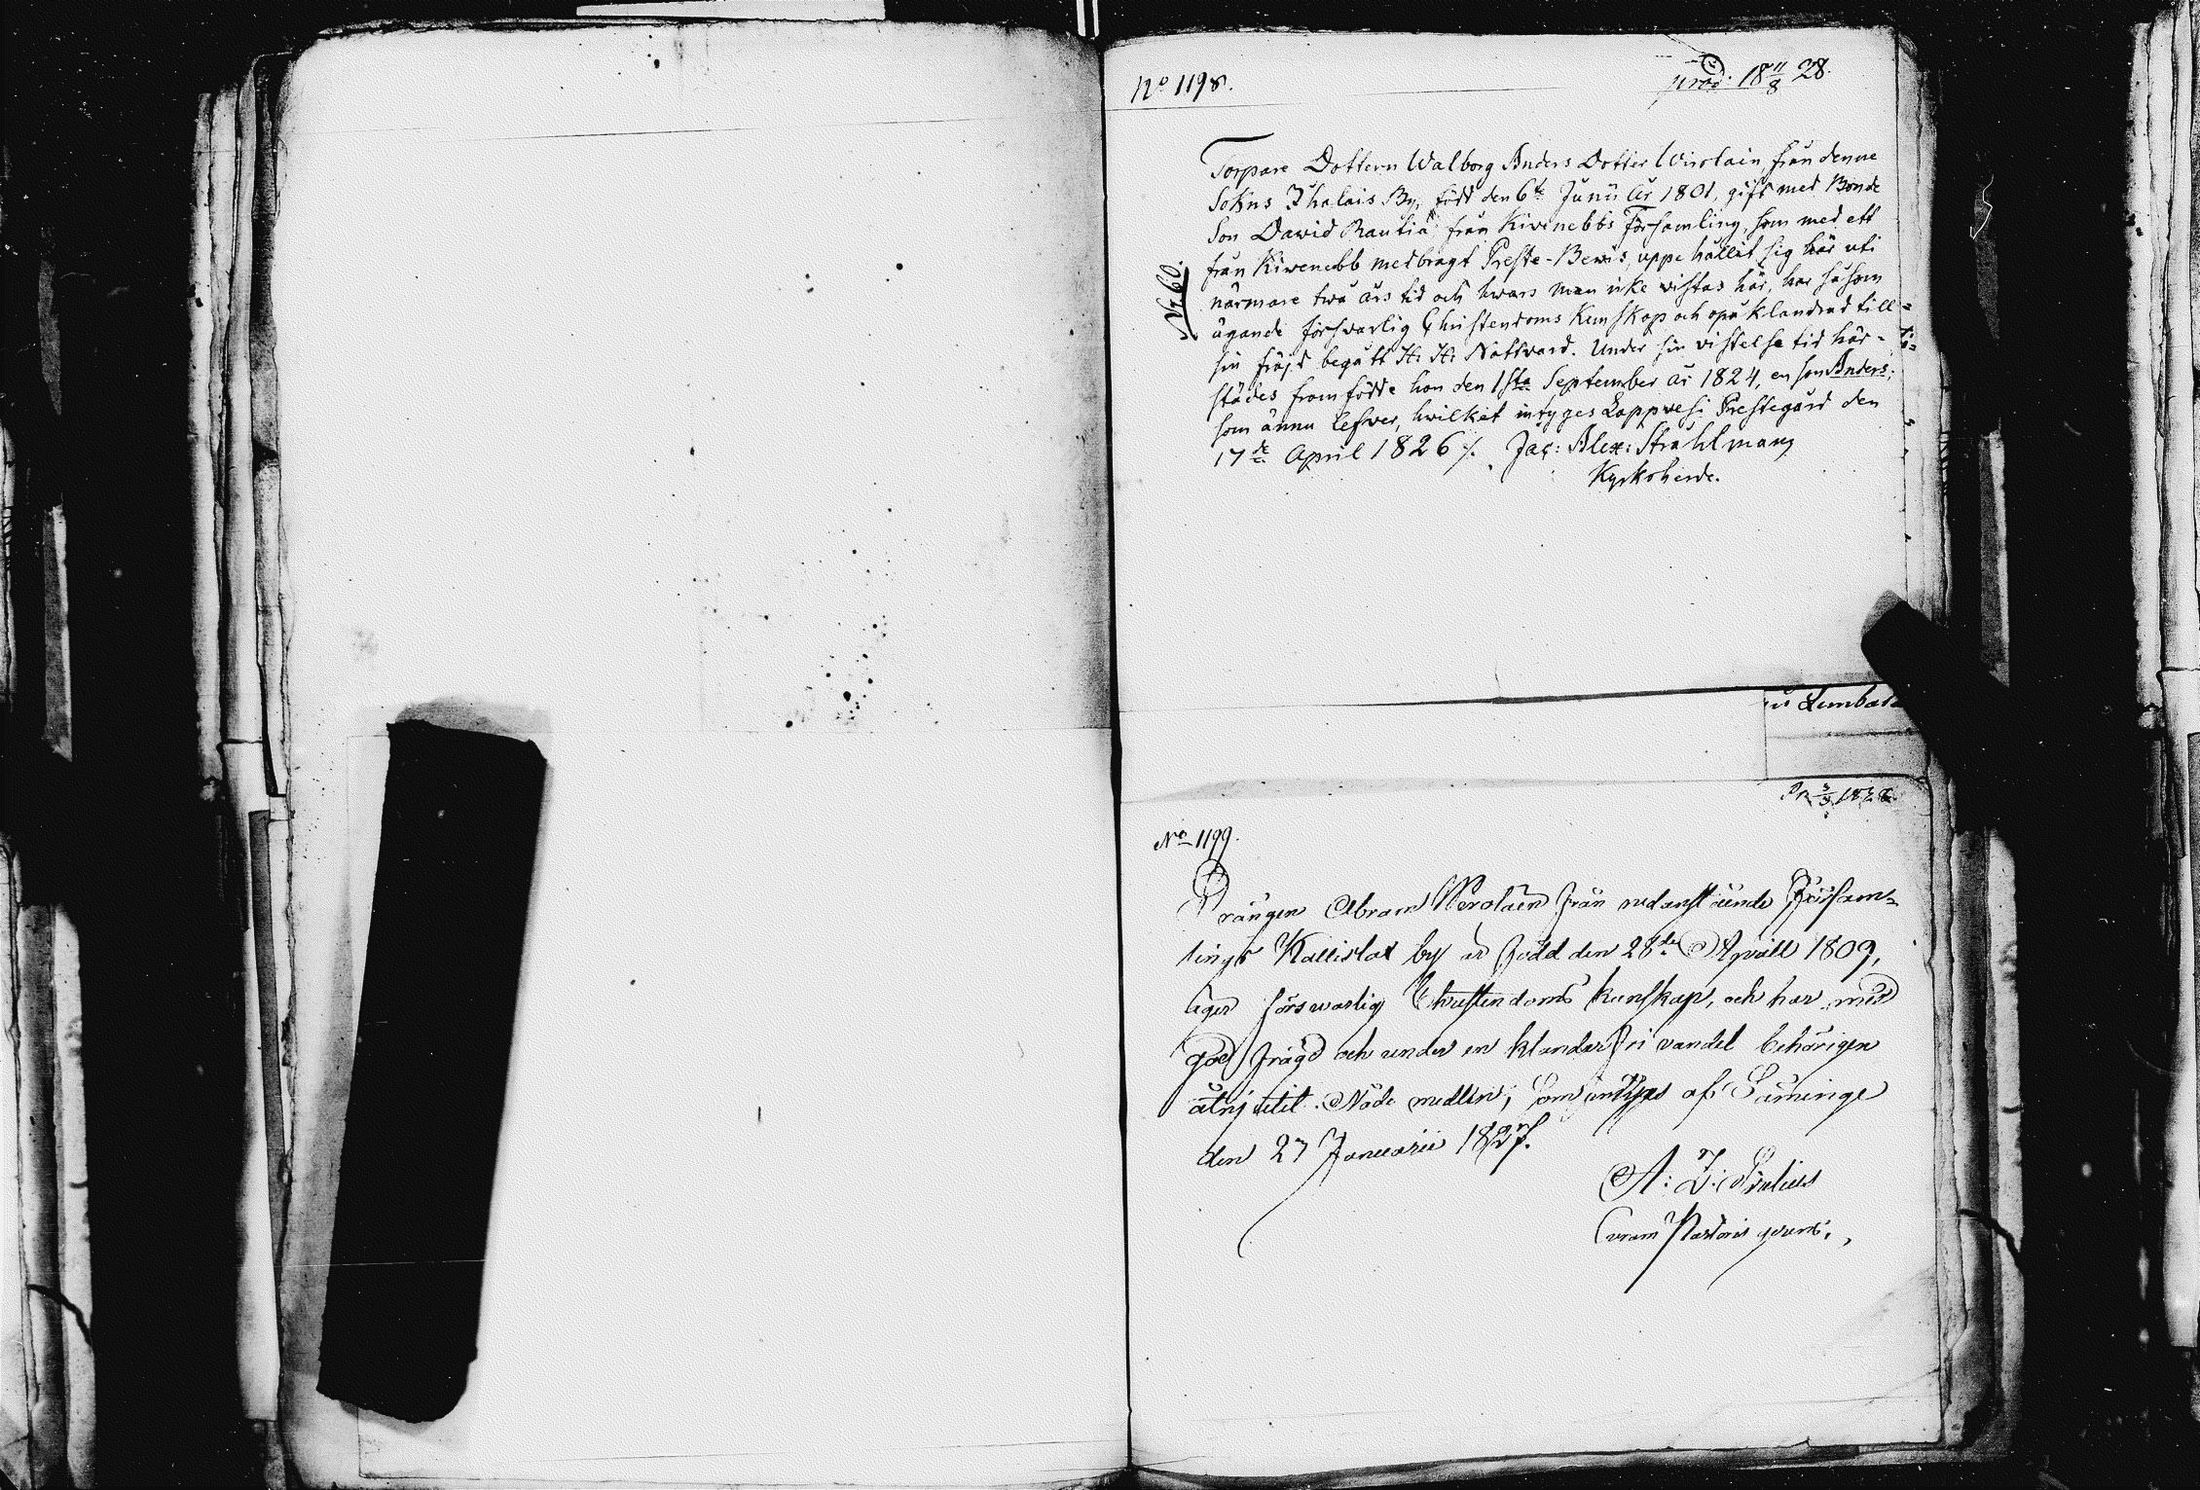 No 1198.
prod: 18 11/8 28.
No 60.
Torpare Dottern Walborg Anders Dotter Wirolain från denne
Sokns Ihalais By, född den 6te Junii år 1801, gift med Bonde
Son Dawid Rautia från Kivinebbs Församling, som med ett
från Kivenebb medbragt Preste-Bewis, uppe hållit sig här uti
närmare twå års tid och hwars man icke vistas här, har såsom
ägande förswarlig Christendoms Kunskap och opåklandrad till=
sin fräjd begått H. H. Nattvard. Under sin vistelse tid här-
städes framfödde hon den 1sta September år 1824, en son Anders;
som ännu lefwer, hwilket intyges Lappvesi Prestegård den
17de April 1826 /. Jac: Alex: Strahlmann
Kyrkoherde.
Pr 3/3 1828.
No 1199.
Drängen Abram Werolaen från nedanstående Församlings
Kallislax by är född den 28de Aprill 1809,
äger försvarlig Christendoms kunskap, och har med
god frägd och under en klander fri vandel behörigen
åtnjutit Nåde medlen; som intyges af Säminge
den 27 Januarii 1827.
Curam Pastoris gerens.